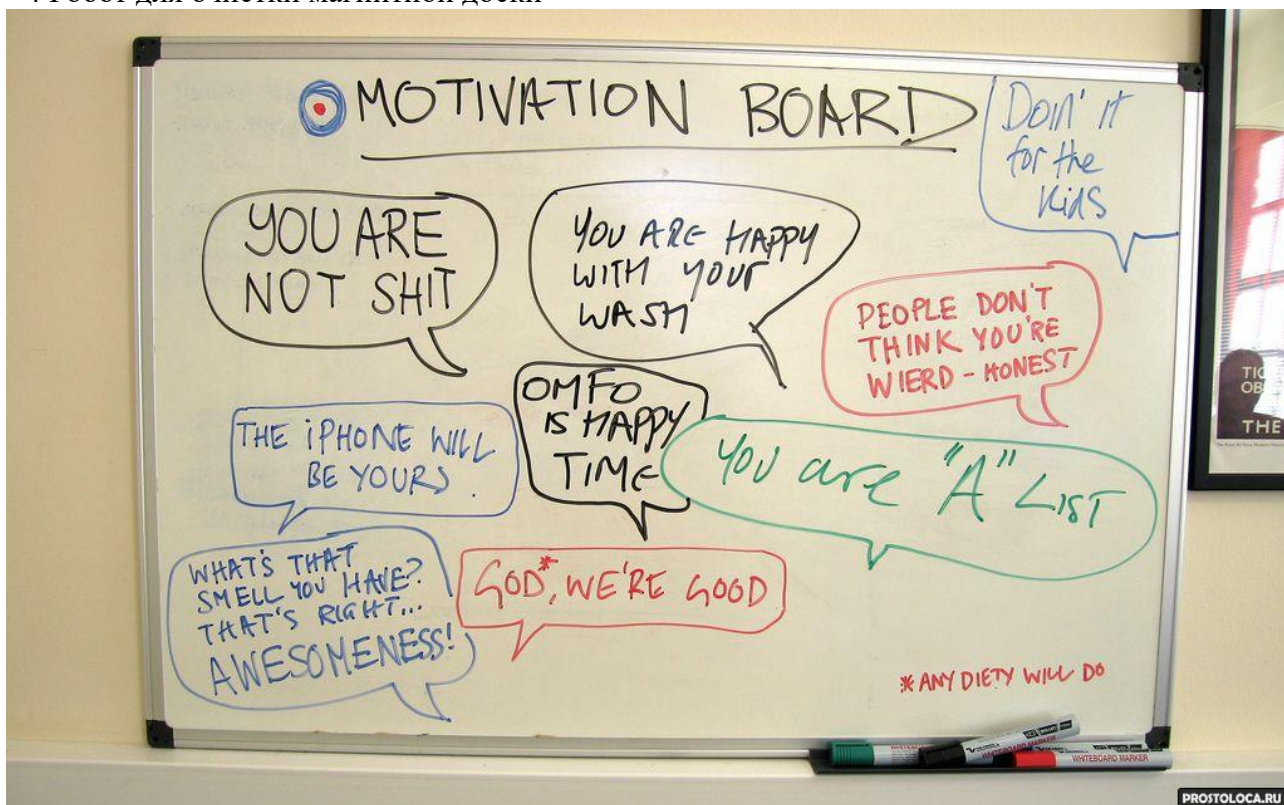 Робот для очистки магнитной доски
MOTIVATION BOARD
DOIN' IT
for the
KIDS
YOU ARE
NOT SHIT
YOU ARE HAPPY
WITH YOUR
WASH
PEOPLE DON'T
THINK YOU'RE
WIERD - HONEST
OMFO
IS HAPPY
TIME
THE iPHONE WILL
BE YOURS.
YOU are "A" LIST
WHAT'S THAT
SMELL YOU HAVE?
THAT'S RIGHT...
AWESOMENESS!
GOD*, WE'RE GOOD
* ANY DIETY WILL DO
THE
WHITEBOARD MARKER
PROSTOLOCA.RU